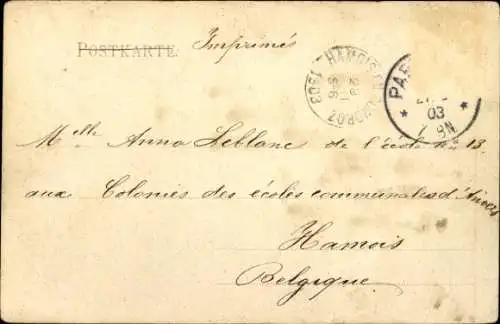 POSTKARTE. Imprimés
HAMOIS CONDROZ 1903
PAR
03
8N
Melle Anna Leblanc de l'école No 13
aux Colonies des écoles communales d'Anvers
Hamois
Belgique